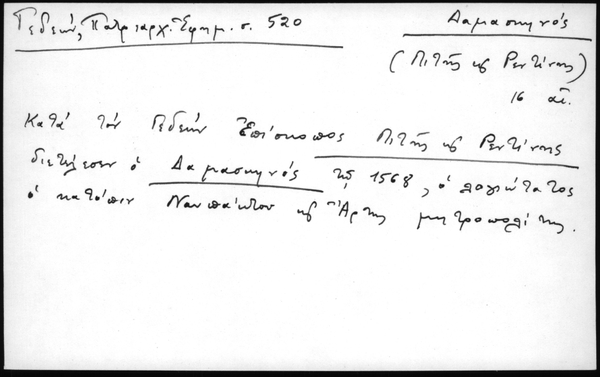 Γεδεών, Πατριαρχ. Ἐφημ. σ. 520
Δαμασκηνός
(Λιτῆς κ Ρεντίνης)
16 αἰ.
Κατά τόν Γεδεών Ἐπίσκοπος Λιτῆς κ Ρεντίνης
διετέλεσεν ὁ Δαμασκηνός τῷ 1568, ὁ λογιώτατος
ὁ κατόπιν Ναυπάκτου κ Ἄρτης μητροπολίτης.